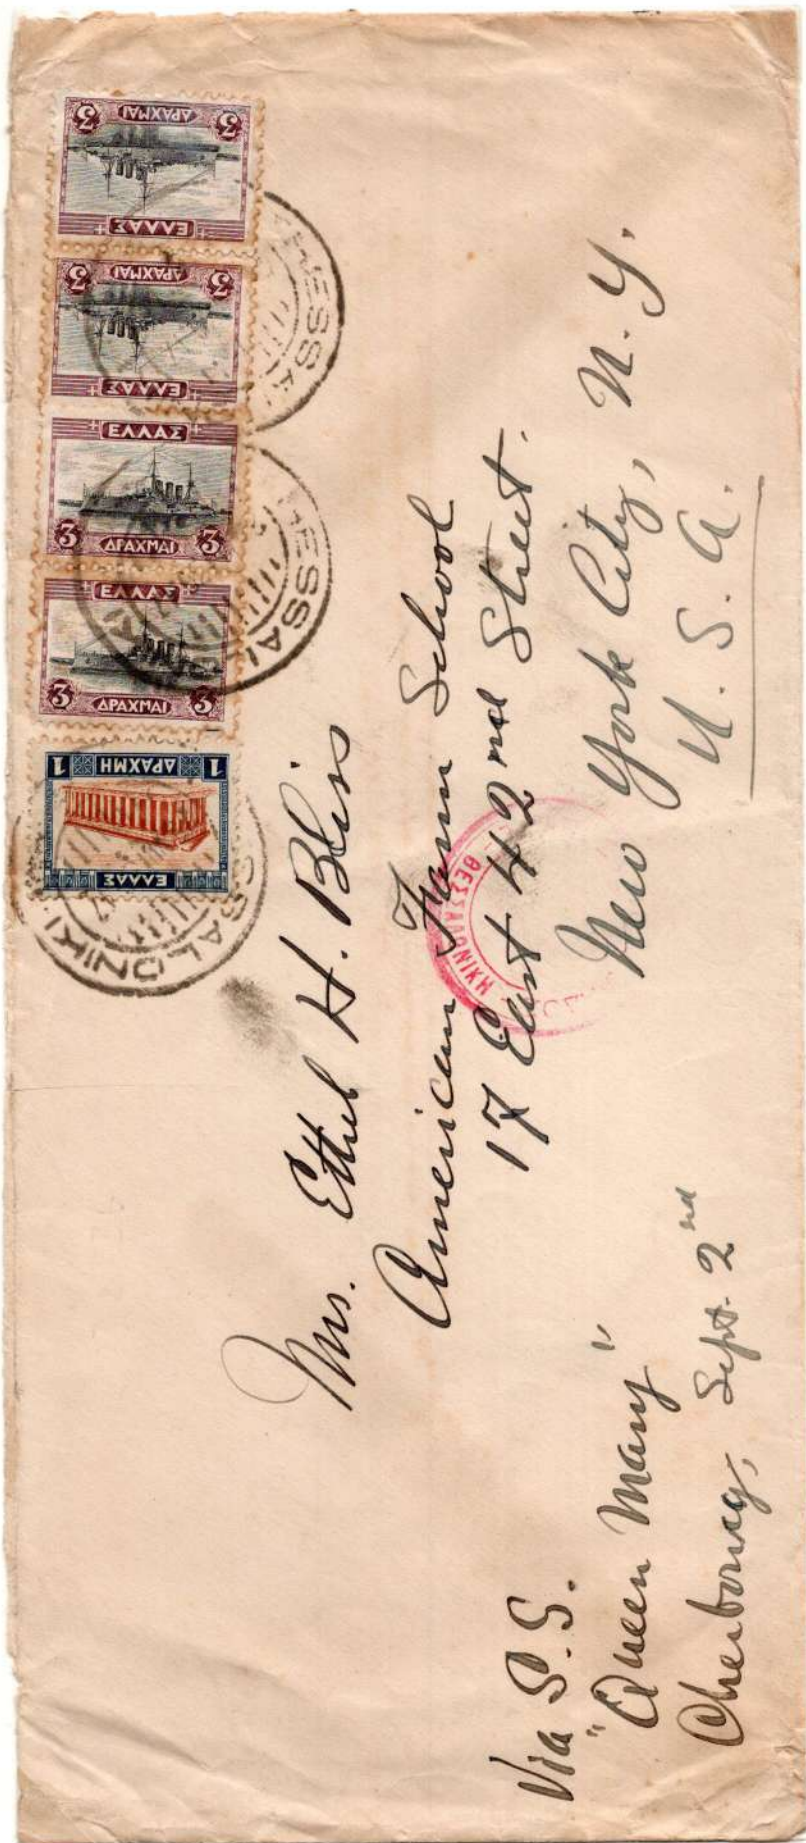 3 ΔΡΑΧΜΑΙ 3
ΕΛΛΑΣ
3 ΔΡΑΧΜΑΙ 3
ΕΛΛΑΣ
ΕΛΛΑΣ
3 ΔΡΑΧΜΑΙ 3
ΕΛΛΑΣ
3 ΔΡΑΧΜΑΙ 3
1 ΔΡΑΧΜΗ 1
ΕΛΛΑΣ
ΘΕΣΣΑΛΟΝΙΚΗ
Mrs. Ethel H. Bliss
American Farm School
17 East 42nd Street.
New York City, N.Y.
U.S.A.
Via S.S.
"Queen Mary"
Cherbourg, Sept. 2nd